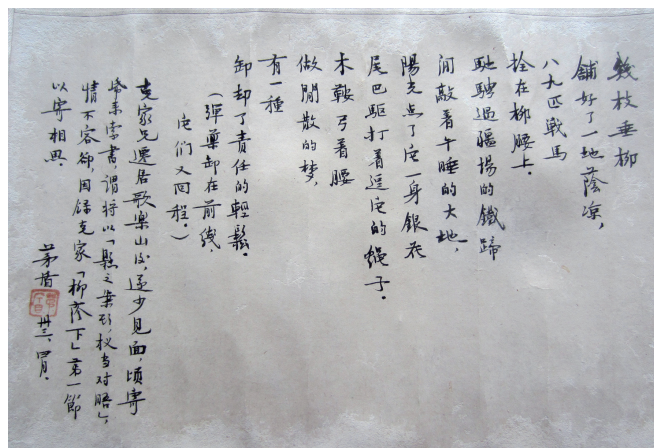 幾枝垂柳
鋪好了一地蔭凉，
八九匹戰馬
拴在柳腰上．
馳騁過疆場的鐵蹄
閒敲着午睡的大地，
陽光点了它一身銀花
尾巴驅打着逗它的蠅子．
木鞍弓着腰
做閒散的梦，
有一種
卸却了責任的輕鬆．
（彈藥卸在前綫，
它们又回程．）
克家兄遷居歌樂山後，遂少見面，頃寄
紙来索書，謂将以「懸之案頭，权当对晤」，
情不容卻，因錄克家「柳蔭下」第一節
以寄相思．
茅盾 卅三、四月．